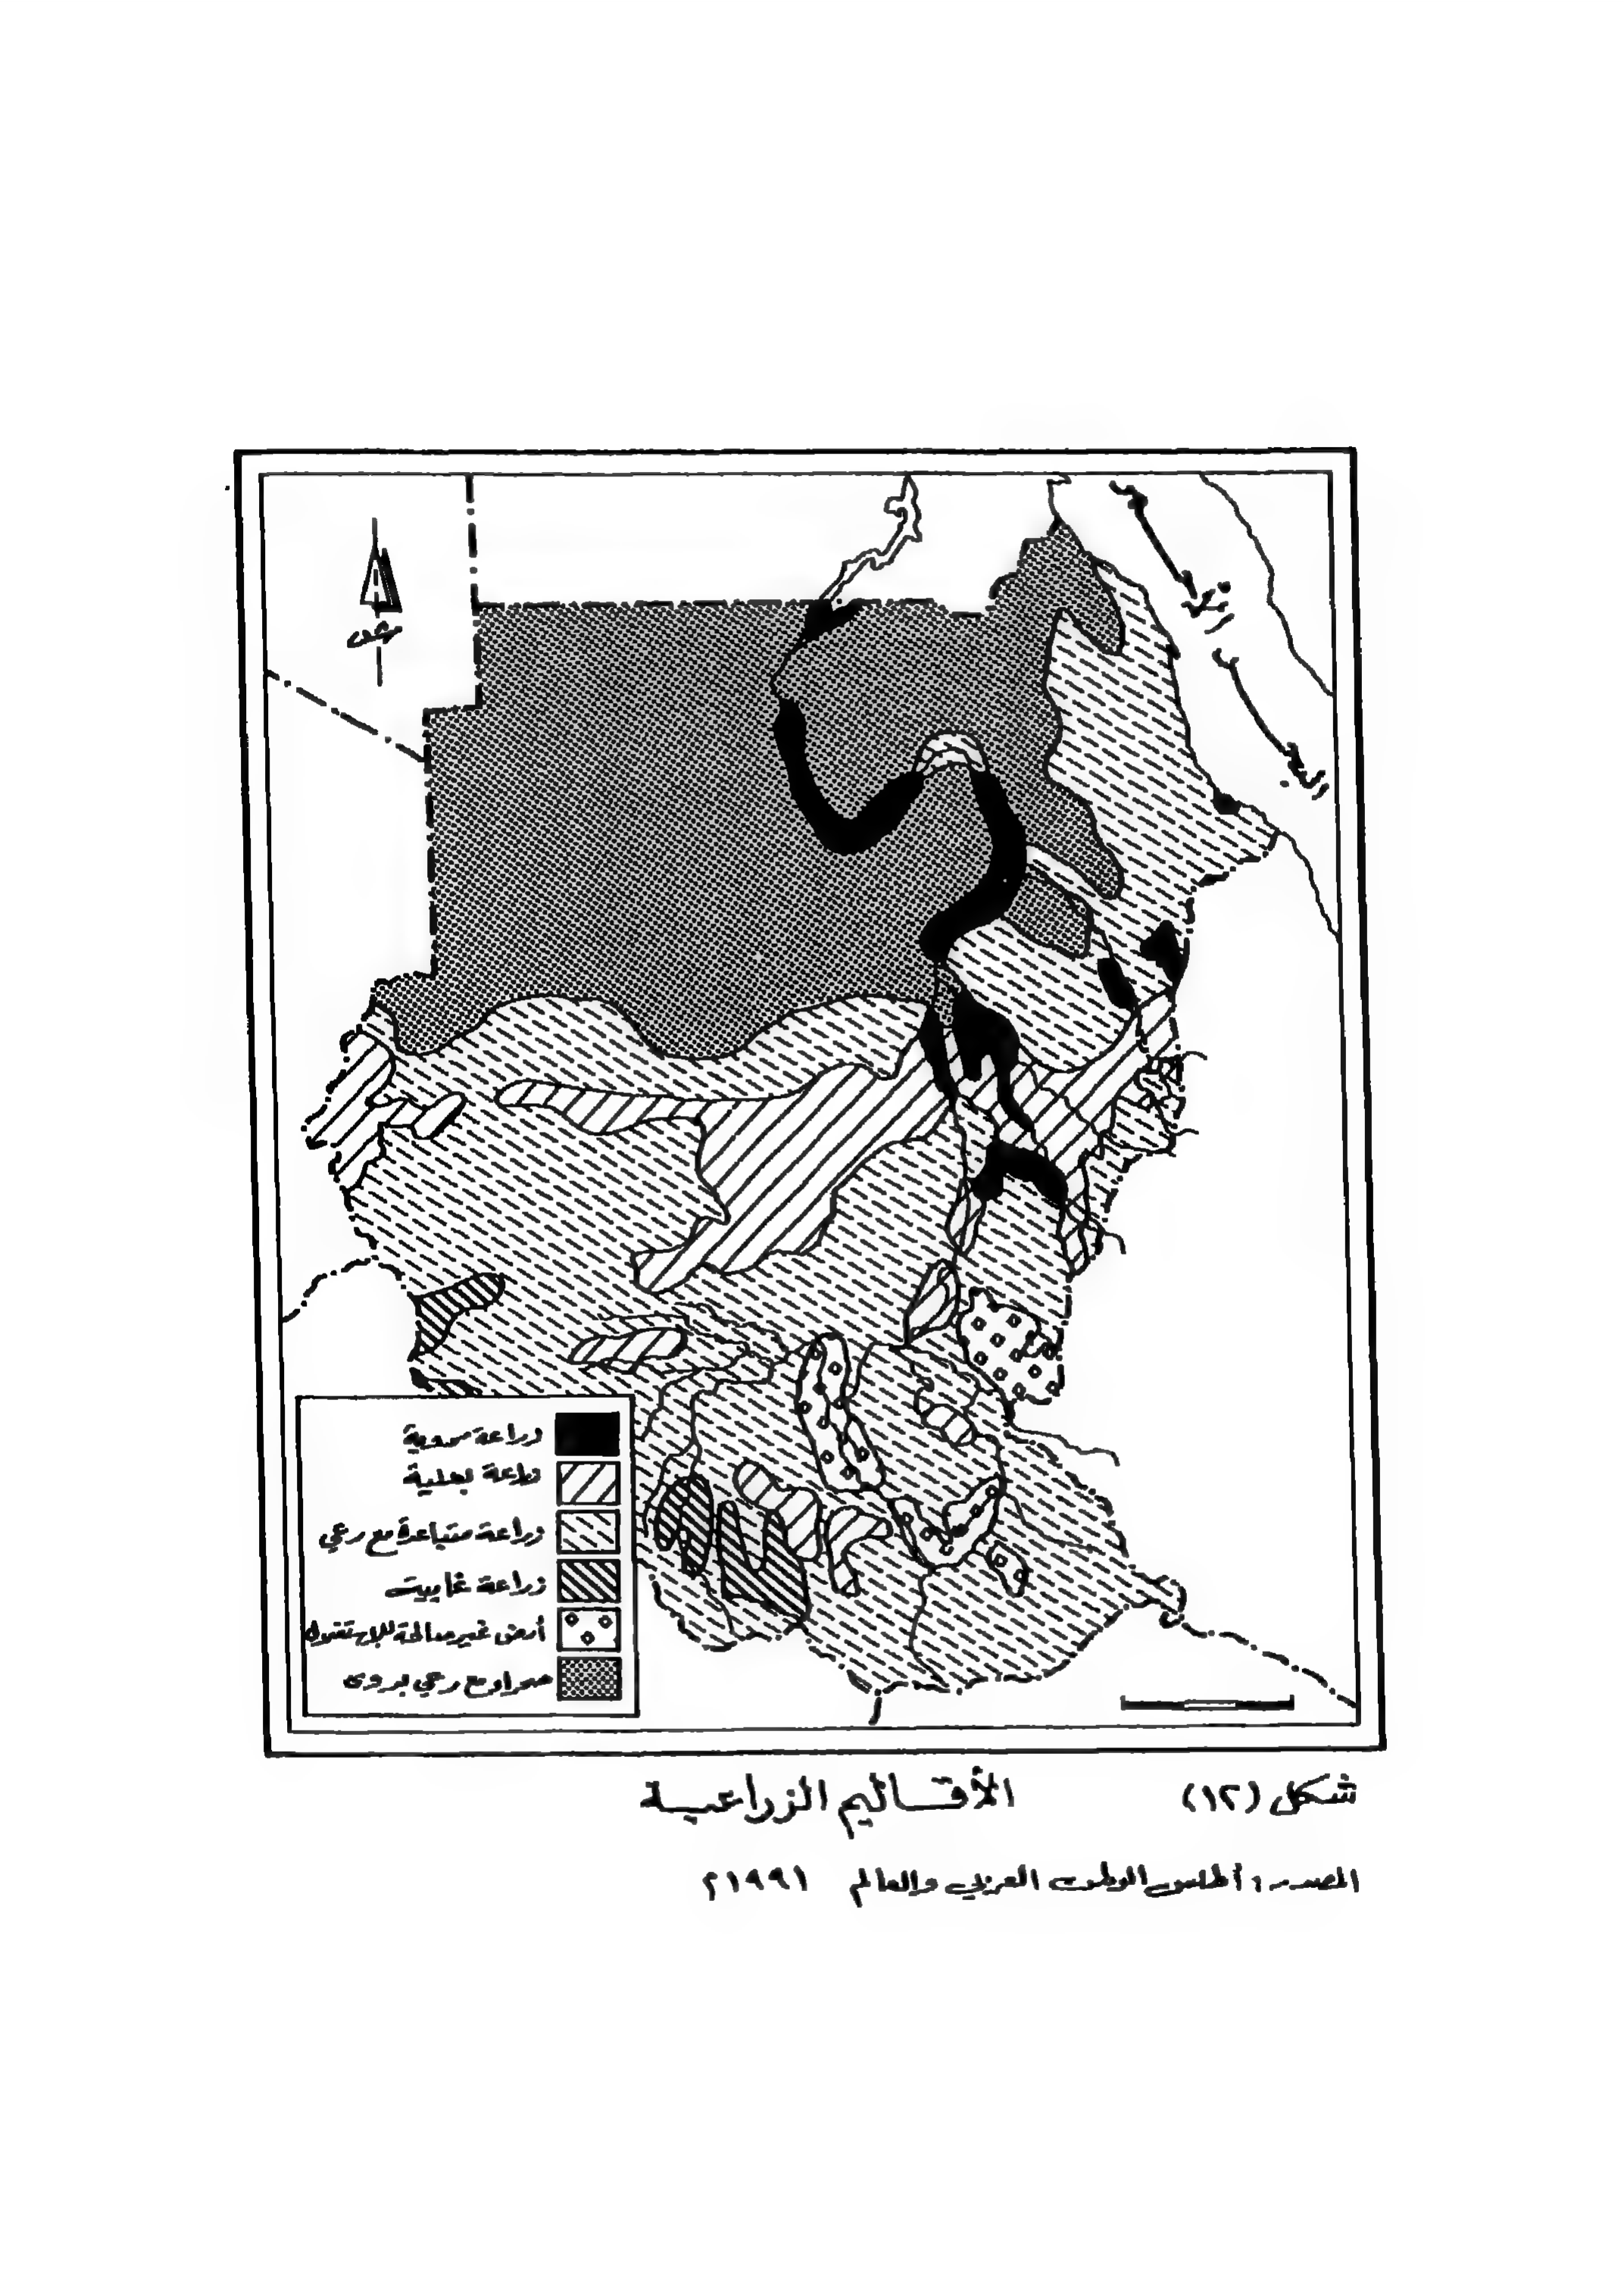 البحر الأحمر
ش
زراعة مروية
زراعة بعلية
زراعة متباعدة مع رعي
زراعة غابيت
أرض غير صالحة للاستغلال
صحراء مع رعي بدوي
شكل (١٢) الأقاليم الزراعية
المصدر: أطلس الوطن العربي والعالم ١٩٩١م